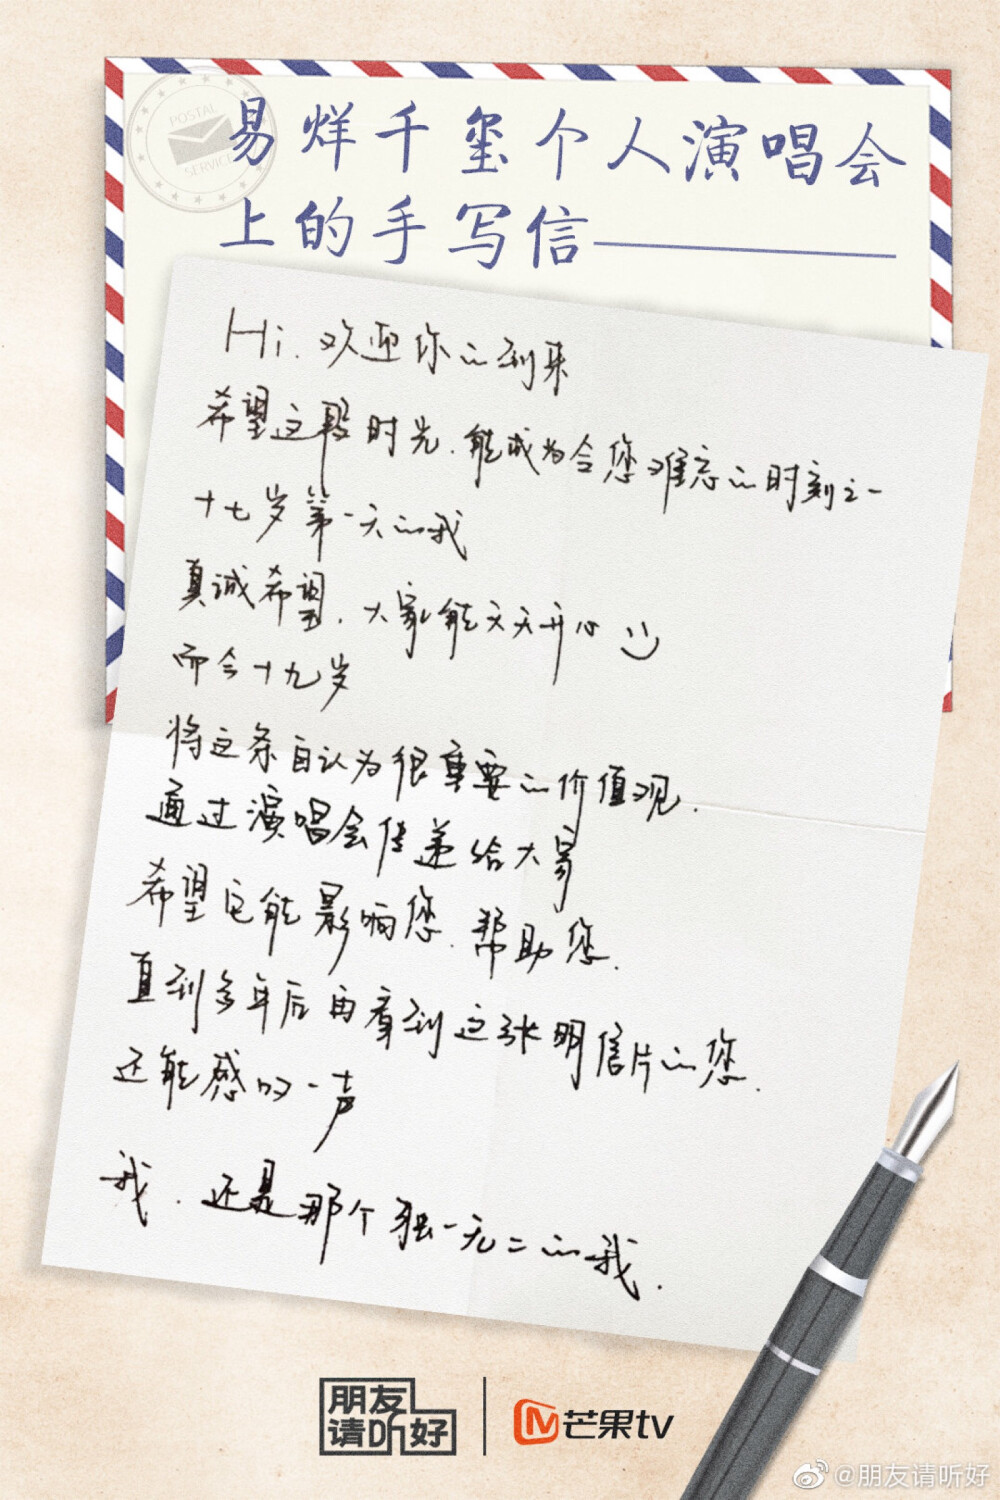 POSTAL
SERVICE
易烊千玺个人演唱会
上的手写信
Hi. 欢迎你的到来
希望这段时光.能成为令您难忘的时刻之一
十七岁第一天的我
真诚希望.大家能天天开心
而今十九岁
将这条自认为很重要的价值观.
通过演唱会传递给大家
希望它能影响您.帮助您.
直到多年后再看到这张明信片的您.
还能感叹一声
我.还是那个独一无二的我.
朋友
请听好
芒果tv
@朋友请听好